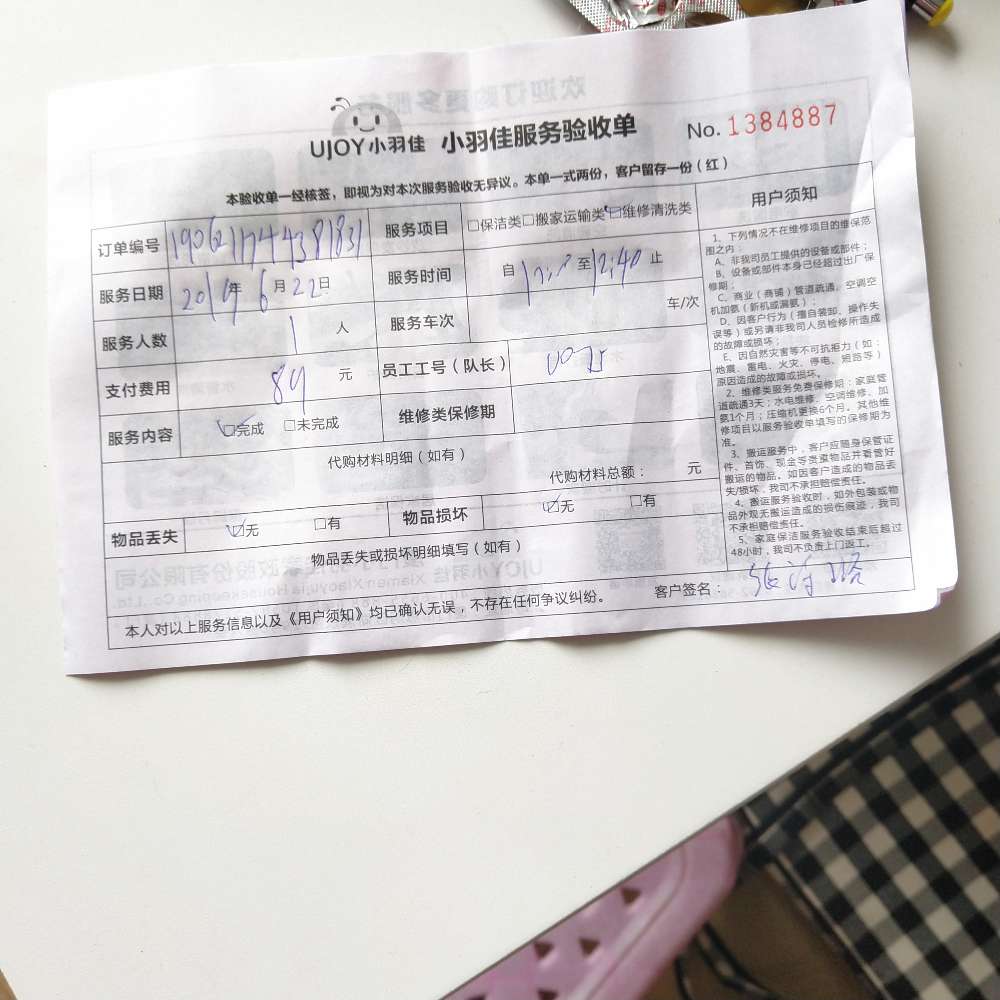 UJOY小羽佳 小羽佳服务验收单 No. 1384887
本验收单一经核签，即视为对本次服务验收无异议。本单一式两份，客户留存一份（红）
订单编号 服务项目 □保洁类□搬家运输类☑维修清洗类
服务日期 2019年6月22日 服务时间 自 至 12:40 止
服务人数 1 人 服务车次 车/次
支付费用 89 元 员工工号（队长）
服务内容 ☑完成 □未完成 维修类保修期
代购材料明细（如有）
代购材料总额： 元
物品丢失 ☑无 □有 物品损坏 ☑无 □有
物品丢失或损坏明细填写（如有）
本人对以上服务信息以及《用户须知》均已确认无误，不存在任何争议纠纷。 客户签名：
用户须知
1、下列情况不在维修项目的维保范
围之内：
A、非我司员工提供的设备或部件；
B、设备或部件本身已经超过出厂保
修期；
C、商业（商铺）管道疏通，空调空
机加氨（新机或漏氨）；
D、因客户行为（擅自装卸、操作失
误等）或另请非我司人员检修所造成
的故障或损坏；
E、因自然灾害等不可抗拒力（如：
地震、雷电、火灾、停电、短路等）
原因造成的故障或损坏。
2、维修类服务免费保修期：家庭管
道疏通3天；水电维修、空调维修、加
氨1个月；压缩机更换6个月。其他维
修项目以服务验收单填写的保修期为
准。
3、搬运服务中，客户应随身保管证
件、首饰、现金等贵重物品并看管好
搬运的物品。如因客户造成的物品丢
失/损坏，我司不承担赔偿责任。
4、搬运服务验收时，如外包装或物
品外观无搬运造成的损伤痕迹，我司
不承担赔偿责任。
5、家庭保洁服务验收结束后超过
48小时，我司不负责上门返工。